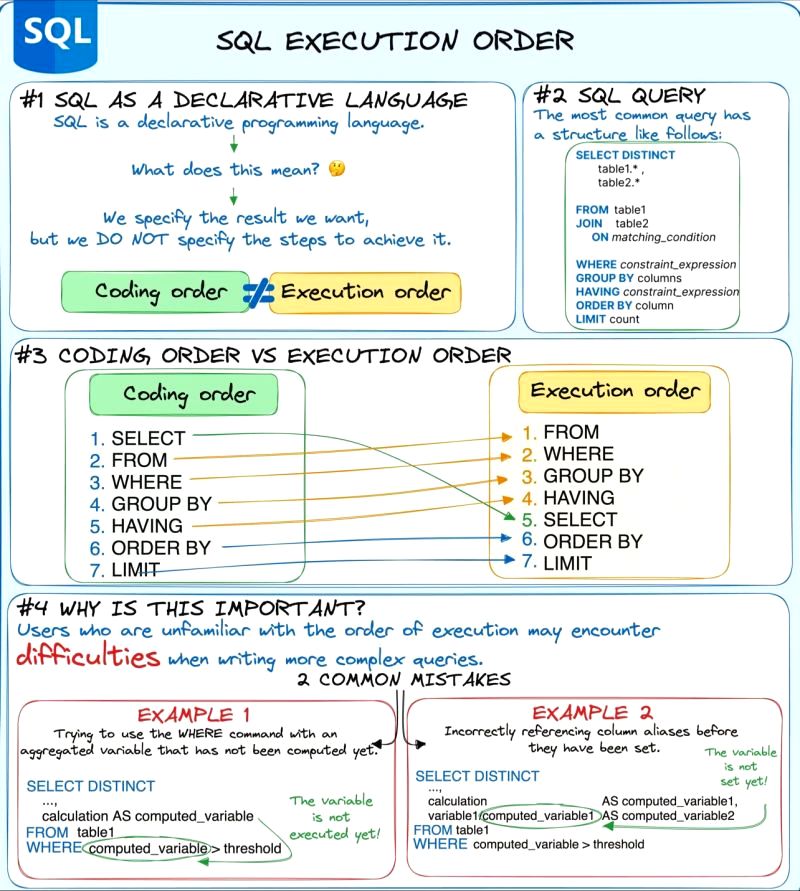 SQL
SQL EXECUTION ORDER
#1 SQL AS A DECLARATIVE LANGUAGE
SQL is a declarative programming language.
What does this mean? 🤔
We specify the result we want,
but we DO NOT specify the steps to achieve it.
Coding order ≠ Execution order
#2 SQL QUERY
The most common query has
a structure like follows:
SELECT DISTINCT
table1.* ,
table2.*
FROM table1
JOIN table2
ON matching_condition
WHERE constraint_expression
GROUP BY columns
HAVING constraint_expression
ORDER BY column
LIMIT count
#3 CODING ORDER VS EXECUTION ORDER
Coding order
1. SELECT
2. FROM
3. WHERE
4. GROUP BY
5. HAVING
6. ORDER BY
7. LIMIT
Execution order
1. FROM
2. WHERE
3. GROUP BY
4. HAVING
5. SELECT
6. ORDER BY
7. LIMIT
#4 WHY IS THIS IMPORTANT?
Users who are unfamiliar with the order of execution may encounter
difficulties when writing more complex queries.
2 COMMON MISTAKES
EXAMPLE 1
Trying to use the WHERE command with an
aggregated variable that has not been computed yet.
SELECT DISTINCT
...,
calculation AS computed_variable
FROM table1
WHERE computed_variable > threshold
The variable
is not
executed yet!
EXAMPLE 2
Incorrectly referencing column aliases before
they have been set.
The variable
is not
set yet!
SELECT DISTINCT
...,
calculation AS computed_variable1,
variable1/computed_variable1 AS computed_variable2
FROM table1
WHERE computed_variable > threshold